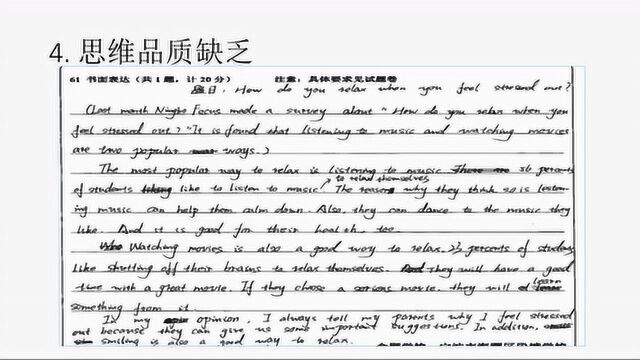 4. 思维品质缺乏
61 书面表达（共1题，计20分） 注意：具体要求见试题卷
题目：How do you relax when you feel stressed out?
(Last month Ningbo Focus made a survey about "How do you relax when you
feel stressed out?" It is found that listening to music and watching movies
are two popular ways.)
The most popular way to relax is listening to music. 36 percents
to relax themselves
of students like to listen to music. The reason why they think so is listen-
ing music can help them calm down. Also, they can dance to the music they
like. And it is good for their health, too.
Watching movies is also a good way to relax. 23 percents of students
like shutting off their brains to relax themselves. They will have a good
time with a great movie. If they chose a serious movie, they will learn
something from it.
In my opinion, I always tell my parents why I feel stressed
out because they can give us some important suggestions. In addition,
smiling is also a good way to relax.